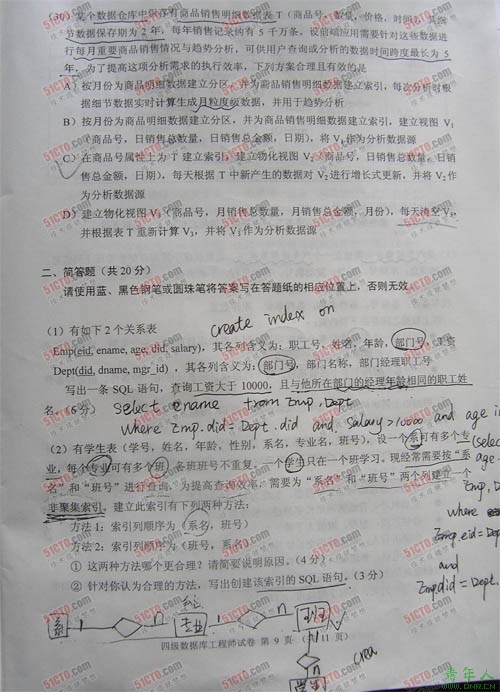 (30) 某个数据仓库中保存有商品销售明细数据表 T（商品号，数量，价格，时间），其细
节数据保存期为 2 年，每年销售记录约有 5 千万条。设前端应用需要针对这些数据进
行每月重要商品销售情况与趋势分析，可供用户查询或分析的数据时间跨度最长为 5
年。为了提高这项分析需求的执行效率，下列方案合理且有效的是
A）按月份为商品明细数据建立分区，并为商品销售明细数据建立索引，每次分析时根
据细节数据实时计算生成月粒度级数据，并用于趋势分析
B）按月份为商品明细数据建立分区，并为商品销售明细数据建立索引，建立视图 V₁
（商品号，日销售总数量，日销售总金额，日期），将 V₁作为分析数据源
C）在商品号属性上为 T 建立索引，建立物化视图 V₂（商品号，日销售总数量，日销
售总金额，日期），每天根据 T 中新产生的数据对 V₂进行增长式更新，并将 V₂作
为分析数据源
D）建立物化视图 V₃（商品号，月销售总数量，月销售总金额，月份），每天清空 V₃，
并根据表 T 重新计算 V₃，并将 V₃作为分析数据源
二、简答题（共 20 分）
请使用蓝、黑色钢笔或圆珠笔将答案写在答题纸的相应位置上，否则无效
（1）有如下 2 个关系表
create index on
Emp(eid, ename, age, did, salary)，其各列含义为：职工号，姓名，年龄，部门号，工资
Dept(did, dname, mgr_id)，其各列含义为：部门号，部门名称，部门经理职工号
写出一条 SQL 语句，查询工资大于 10000，且与他所在部门的经理年龄相同的职工姓
名。（6 分）
select ename from Emp, Dept
where Emp.did = Dept.did and salary>10000 and age in
（2）有学生表（学号，姓名，年龄，性别，系名，专业名，班号），设一个系可有多个专
(select
业，每个专业可有多个班，各班班号不重复，一个学生只在一个班学习。现经常需要按“系
age
名”和“班号”进行查询，为提高查询效率，需要为“系名”和“班号”两个列建立一个
Emp, D
非聚集索引，建立此索引有下列两种方法：
where
方法 1：索引列顺序为（系名，班号）
Emp.eid = Dep
方法 2：索引列顺序为（班号，系名）
① 这两种方法哪个更合理？请简要说明原因。（4 分）
and
② 针对你认为合理的方法，写出创建该索引的 SQL 语句。（3 分）
Emp.did = Dep
系 1 n 专业 1 n 班
四级数据库工程师试卷 第 9 页 11 页
n
crea
学生
51CTO.com
技术成就梦想
青年人
WWW.QNR.CN